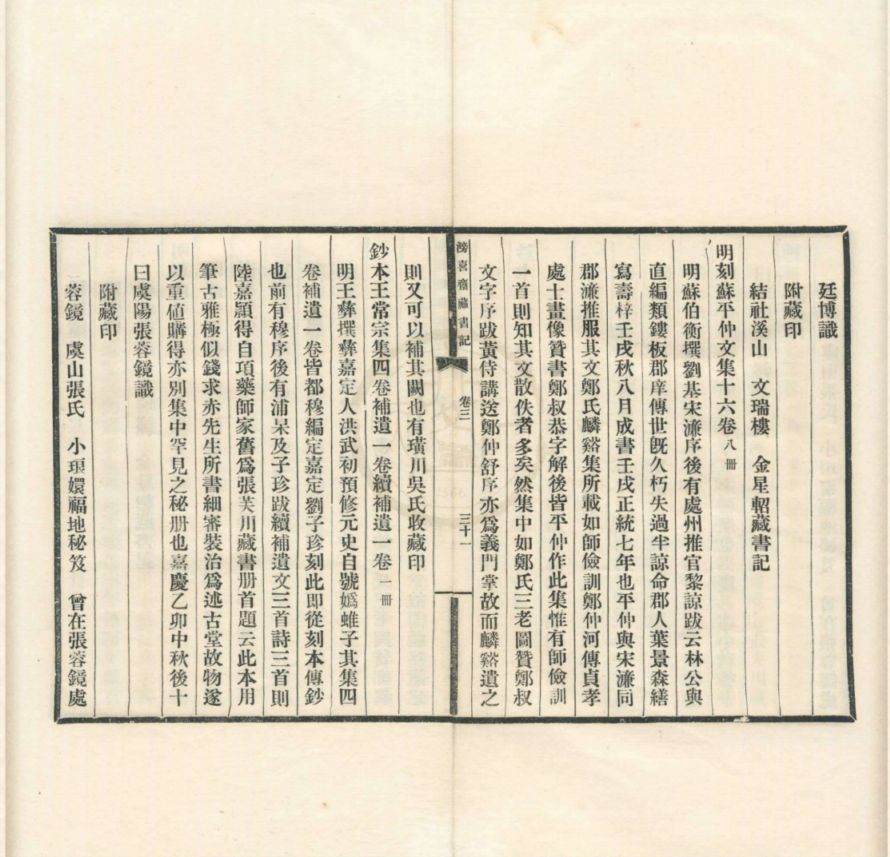 廷博識
附藏印
結社溪山　文瑞樓　金星軺藏書記
明刻蘇平仲文集十六卷八冊
明蘇伯衡撰劉基宋濂序後有處州推官黎諒跋云林公與
直編類鏤板郡庠傳世旣久朽失過半諒命郡人葉景森繕
寫壽梓壬戌秋八月成書壬戌正統七年也平仲與宋濂同
郡濂推服其文鄭氏麟谿集所載如師儉訓鄭仲河傳貞孝
處士畫像贊書鄭叔恭字解後皆平仲作此集惟有師儉訓
一首則知其文散佚者多矣然集中如鄭氏三老圖贊鄭叔
文字序跋黃侍講送鄭仲舒序亦爲義門掌故而麟谿遺之
滂喜齋藏書記　卷三　三十一
則又可以補其闕也有璜川吳氏收藏印
鈔本王常宗集四卷補遺一卷續補遺一卷一冊
明王彝撰彝嘉定人洪武初預修元史自號嬀蜼子其集四
卷補遺一卷皆都穆編定嘉定劉子珍刻此卽從刻本傳鈔
也前有穆序後有浦杲及子珍跋續補遺文三首詩三首則
陸嘉顥得自項藥師家舊爲張芙川藏書册首題云此本用
筆古雅極似錢求赤先生所書細審裝治爲述古堂故物遂
以重値購得亦別集中罕見之秘册也嘉慶乙卯中秋後十
日虞陽張蓉鏡識
附藏印
蓉鏡　虞山張氏　小瑯嬛福地秘笈　曾在張蓉鏡處